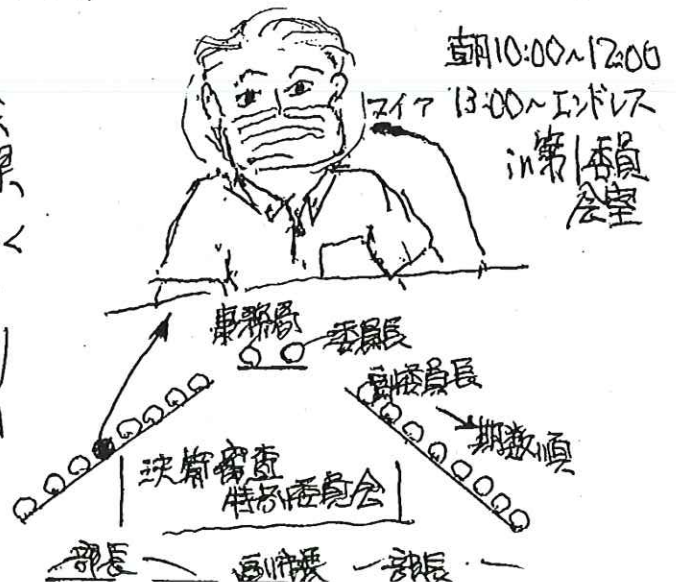 朝10:00~12:00
13:00~エンドレス
in第1委員
会室
事務局
委員長
副委員長
期数順
決算審査
特別委員会
部長
副市長
部長